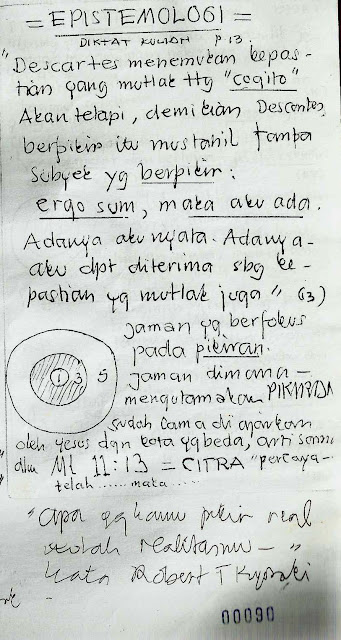 = EPISTEMOLOGI =
DIKTAT KULIAH P 13.
"Descartes menemukan kepas-
tian yang mutlak ttg "cogito"
Akan tetapi, demikian Descartes,
berpikir itu mustahil tampa
Subyek yg berpikir:
ergo sum, maka aku ada.
Adanya aku nyata. Adanya-
aku dpt diterima sbg ke-
pastian yg mutlak juga" (13)
jaman yg berfokus
pada pikiran.
jaman dimana-
mengutamakan
1 3 5
sudah lama di ajarkan
oleh yesus dgn kata yg beda, arti sama
dlm Mt 11:13 = CITRA "percaya-
telah ...... maka .....
"Apa yg kamu pikir real
adalah realitasmu - "
kata Robert T Kiyosaki
00090